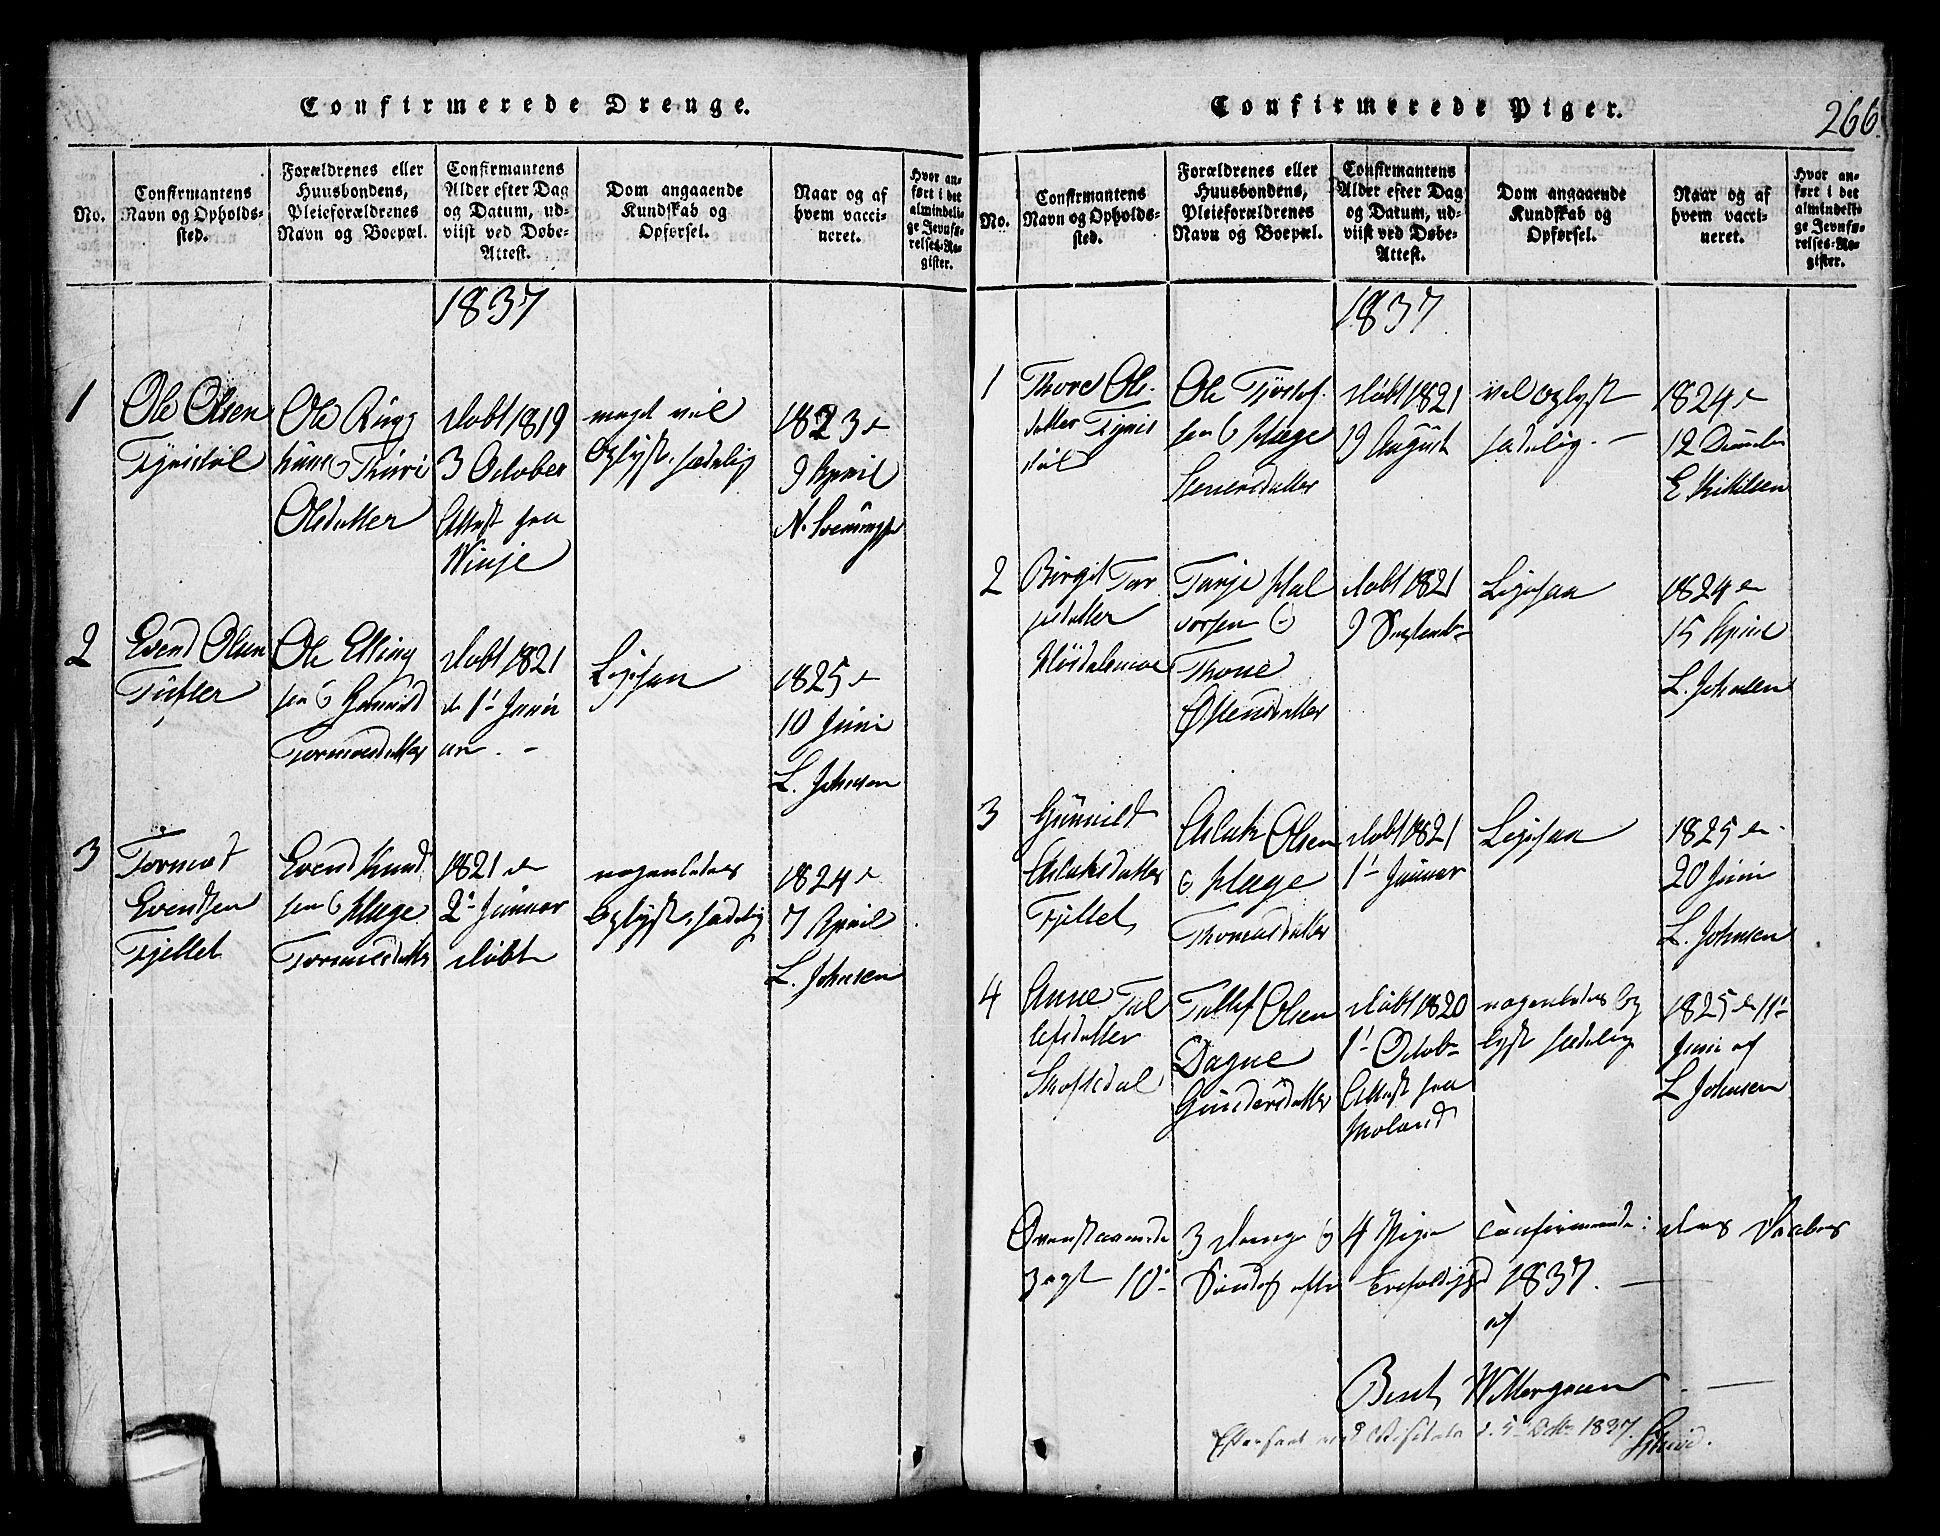 Confirmerede Drenge.
No.
Confirmantens
Navn og Opholds-
sted.
Forældrenes eller
Huusbondens,
Pleieforældrenes
Navn og Boepæl.
Confirmantens
Alder efter Dag
og Datum, ud-
viist ved Døbe-
Attest.
Dom angaaende
Kundskab og
Opførsel.
Naar og af
hvem vacci-
neret.
Hvor an-
ført i det
almindeli-
ge Jevnfø-
relses-Re-
gister.
1837
1
Ole Olsen
Ole
Olsdatter
døbt 1819
3 October
Attest fra
Winje
meget vel
oplyst, sædelig
1823 d
9 April
2
Evend Olsen
Tufter
Ole Elling
sen & Gunild
Tormodsdatter
døbt 1821
d 1' Janu
ar. -
Ligesaa
1825 d
10 Juni
L. Johnsen
3
Tormod
Evendsen
Fjellet
Evend Knud
sen & Hæge
Tormodsdatter
1821 d
2' Januar
døbt
nogenledes
oplyst, sædelig
1824 d
7 April
L. Johnsen
Confirmerede Piger.
266
No.
Confirmantens
Navn og Opholds-
sted.
Forældrenes eller
Huusbondens,
Pleieforældrenes
Navn og Boepæl.
Confirmantens
Alder efter Dag
og Datum, ud-
viist ved Døbe-
Attest.
Dom angaaende
Kundskab og
Opførsel.
Naar og af
hvem vacci-
neret.
Hvor an-
ført i det
almindeli-
ge Jevnfø-
relses-Re-
gister.
1837
1
Thore Ols-
datter
Ole
sen & Hæge
Steensdatter
døbt 1821
19 August
vel oplyst
sædelig. -
1824 d
12
E Kittilsen
2
Birgit Tar
jesdatter
Tarje Hal
vorsen &
Thone
Østensdatter
døbt 1821
9 Septembr
Ligesaa
1824 d
15 April
L. Johnsen
3
Gunnild
Aslaksdatter
Fjellet
Aslak Olsen
& Hæge
Thomasdatter
døbt 1821
1' Januar
Ligesaa
1825 d
20 Juni
L. Johnsen
4
Anne Tal
lefsdatter
Skafsdal
Tallef Olsen
Dagne
Gundersdatter
døbt 1820
1' Octob
Attest fra
Moland
nogenledes op
lyst sædelig
1825 d 11'
Juni af
L Johnsen
Ovenstaaende 3 Drenge & 4 Piger confirmerede
10' Søndag efter Trefoldighed 1837. -
af
Bent Wettergreen. -
Efterseet ved d. 5 1837.